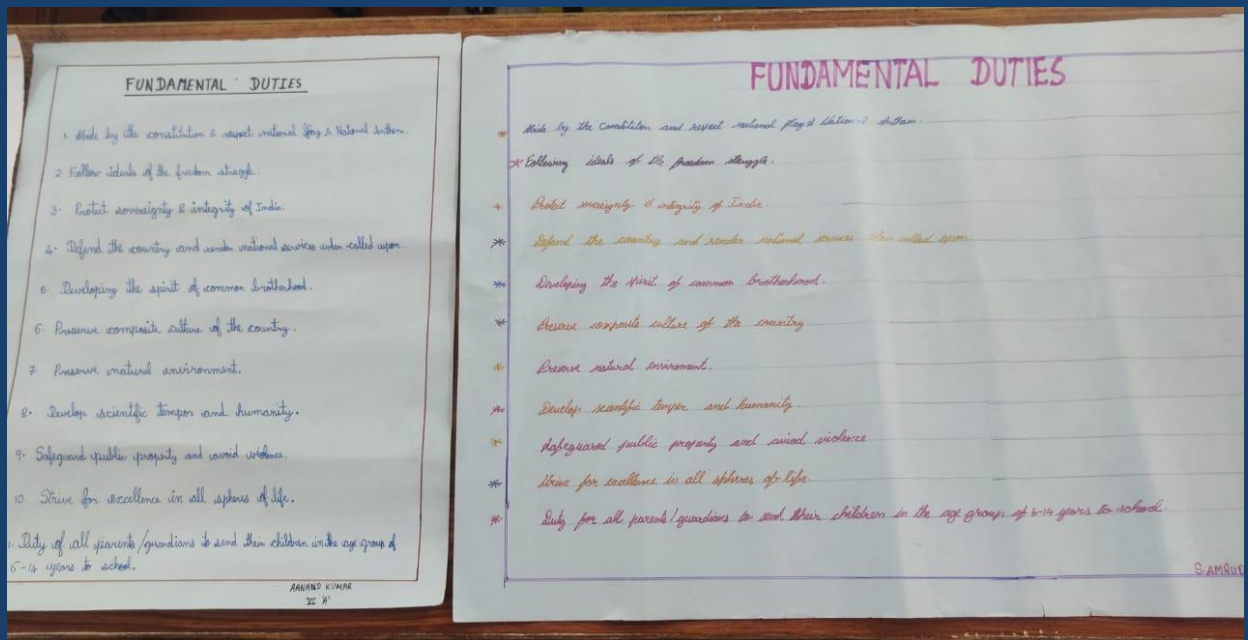 FUNDAMENTAL DUTIES
1. Abide by the constitution & respect national flag & National Anthem.
2. Follow ideals of the fredom struggle.
3. Protect sovereignty & integrity of India.
4. Defend the country and render national services when called upon
5. Developing the spirit of common brotherhood.
6. Preserve composite culture of the country.
7. Preserve natural environment.
8. Develop scientific tempor and humanity.
9. Safeguard public property and avoid violence.
10. Strive for excellence in all spheres of life.
1. Duty of all parents/guardians to send their children in the age group of
6-14 years to school.
AANAND KUMAR
VI 'A'
FUNDAMENTAL DUTIES
Abide by the Constitution and respect national flag & National Anthem.
Following ideals of the freedom struggle.
Protect soverignty & integrity of India
Defend the country and render national services when called upon
Developing the spirit of common brotherhood.
Preserve composite culture of the country.
Preserve natural enviroment.
Develop scientific temper and humanity.
Safeguared public property and aviod violence
Strive for excellence in all spheres of life.
Duty for all parents/guardians to send their children in the age group of 6-14 years to school.
S.AMRUD